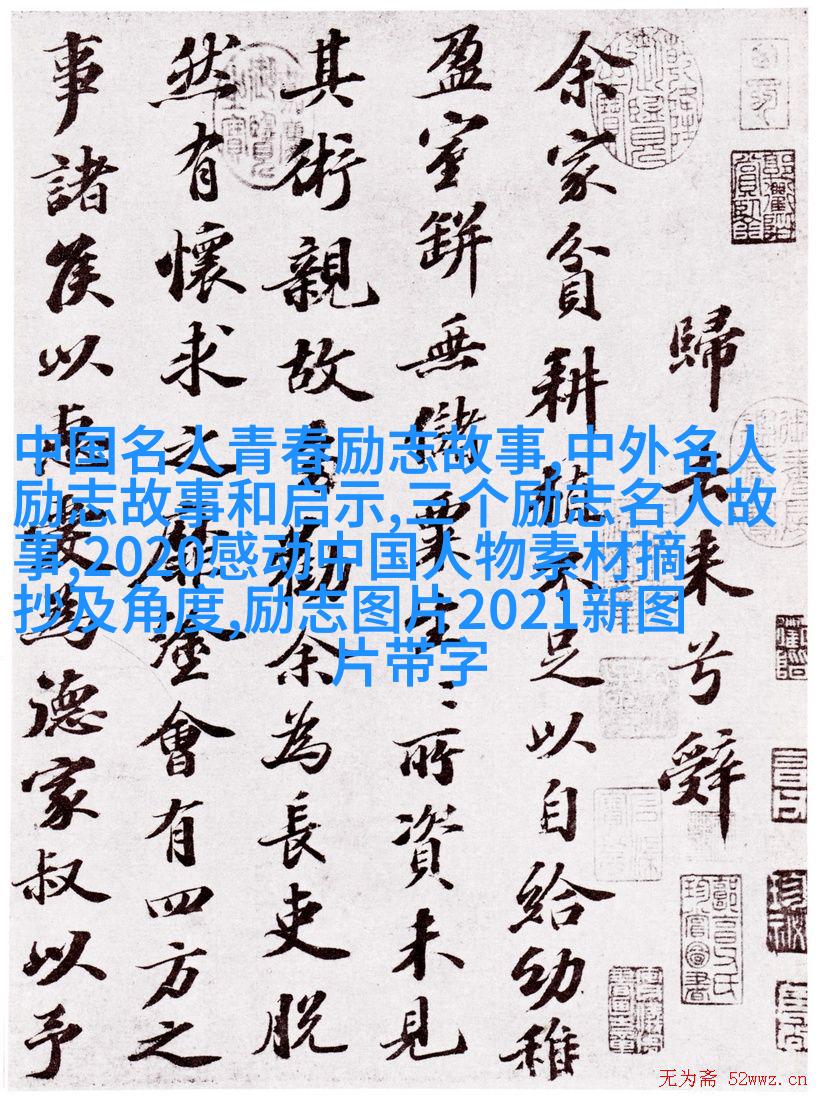 歸去来兮辭
余家貧耕植不足以自給幼稚
盈室缾無儲粟生〻所資未見
其術親故多勸余為長吏脱
然有懷求之靡塗會有四方之
事諸侯以惠愛為德家叔以予
中国名人青春励志故事,中外名人
励志故事和启示,三个励志名人故
事,2020感动中国人物素材摘
抄及角度,励志图片2021新图
片带字
无为斋 52wwz.cn